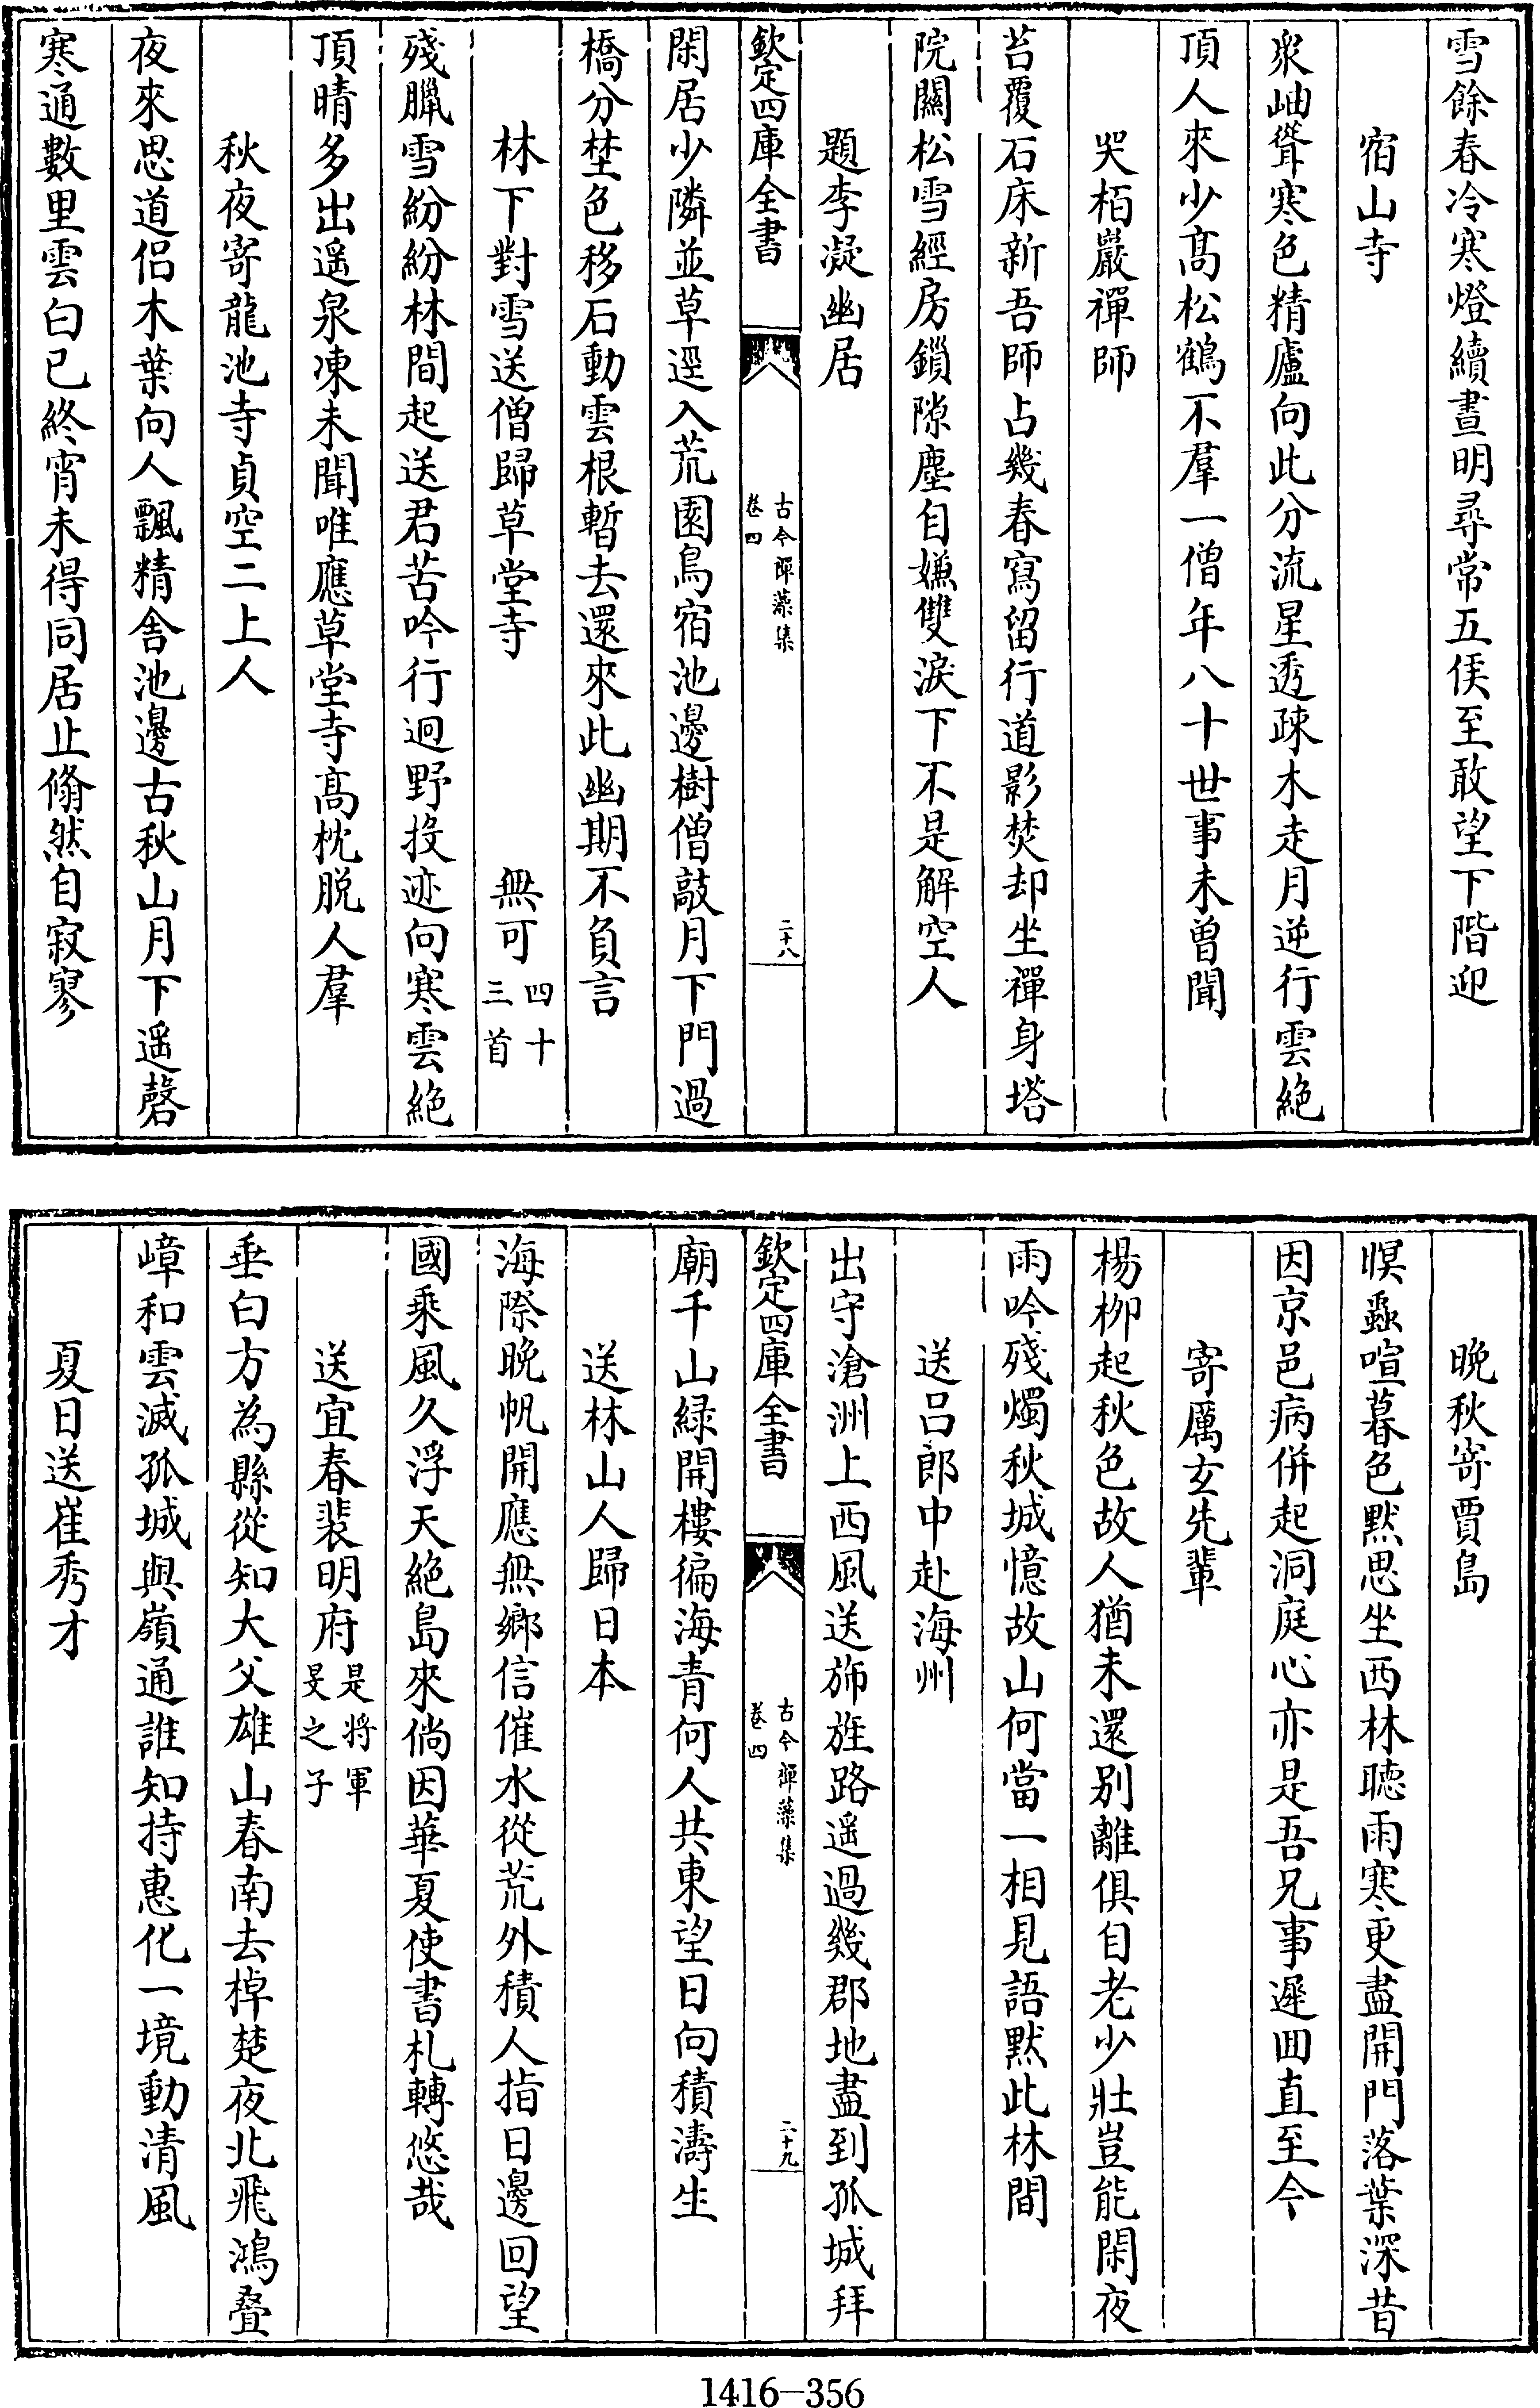 雪餘春冷寒燈續晝明尋常五侯至敢望下階迎
宿山寺
衆岫聳寒色精廬向此分流星透疎木走月逆行雲絶
頂人來少髙松鶴不羣一僧年八十世事未曽聞
哭栢巖禪師
苔覆石床新吾師占幾春寫留行道影焚却坐禪身塔
院關松雪經房鎻隙塵自嫌雙淚下不是解空人
題李凝幽居
欽定四庫全書
古今禪藻集
卷四
二十八
閑居少隣並草逕入荒園鳥宿池邊樹僧敲月下門過
橋分埜色移石動雲根暫去還來此幽期不負言
林下對雪送僧歸草堂寺 無可四十三首
殘臘雪紛紛林間起送君苦吟行迥野投迹向寒雲絶
頂晴多出遥泉凍未聞唯應草堂寺髙枕脱人羣
秋夜寄龍池寺貞空二上人
夜來思道侣木葉向人飄精舍池邊古秋山月下遥磬
寒通數里雲白已終宵未得同居止翛然自寂寥
晚秋寄賈島
暝蟲喧暮色黙思坐西林聴雨寒更盡開門落葉深昔
因京邑病併起洞庭心亦是吾兄事遲囬直至今
寄厲玄先輩
楊栁起秋色故人猶未還别離俱自老少壯豈能閑夜
雨吟殘燭秋城憶故山何當一相見語黙此林間
送吕郎中赴海州
出守滄洲上西風送斾旌路遥過幾郡地盡到孤城拜
欽定四庫全書
古今禪藻集
卷四
二十九
廟千山緑開樓徧海青何人共東望日向積濤生
送林山人歸日本
海際晚帆開應無鄉信催水從荒外積人指日邊回望
國乘風久浮天絶島來倘因華夏使書札轉悠哉
送宜春裴明府是將軍旻之子
垂白方為縣從知大父雄山春南去棹楚夜北飛鴻疊
嶂和雲滅孤城與嶺通誰知持惠化一境動清風
夏日送崔秀才
1416-356